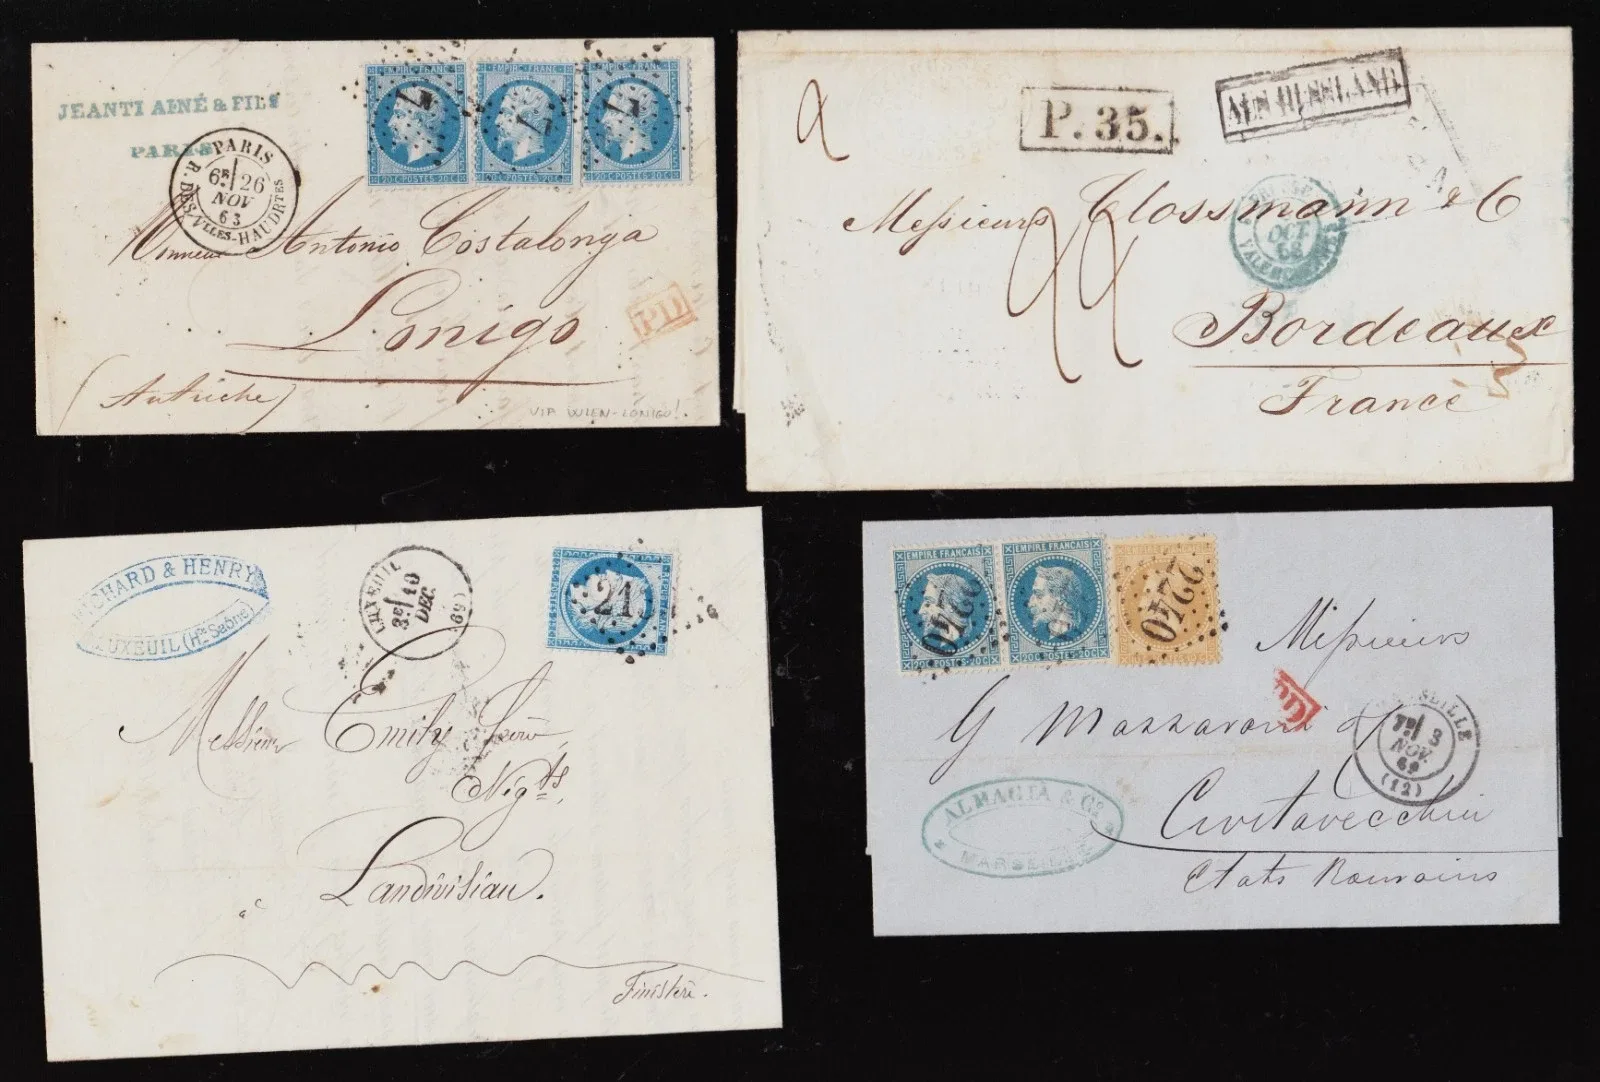 JEANTI AINÉ & FILS
PARIS
PARIS
6E 26
NOV
63
R. DES VLLES-HAUDRTES
EMPIRE FRANC
EMPIRE FRANC
EMPIRE FRANC
20 C-POSTES-20 C
20 C-POSTES-20 C
20 C-POSTES-20 C
Antonio Costalonga
Lonigo
PD
(Autriche)
VIA WIEN-LONIGO!
2
P. 35.
AUS RUSSLAND
Messieurs Clossmann & C
OCT.
68
Bordeaux
France
RICHARD & HENRY
LUXEUIL (Hte Saône)
LUXEUIL
3E 10
DEC.
(69)
21
16
Messieurs Emily
Nigts,
Landivisiau.
Finistère.
EMPIRE FRANÇAIS
EMPIRE FRANÇAIS
2240
2240
20 C-POSTES-20 C
20 C-POSTES-20 C
Messieurs
PD
G Mazzavonti &
MARSEILLE
7E 3
NOV.
69
(12)
ALMAGIA & Co.
MARSEILLE
Civitavecchia
Etats Romains